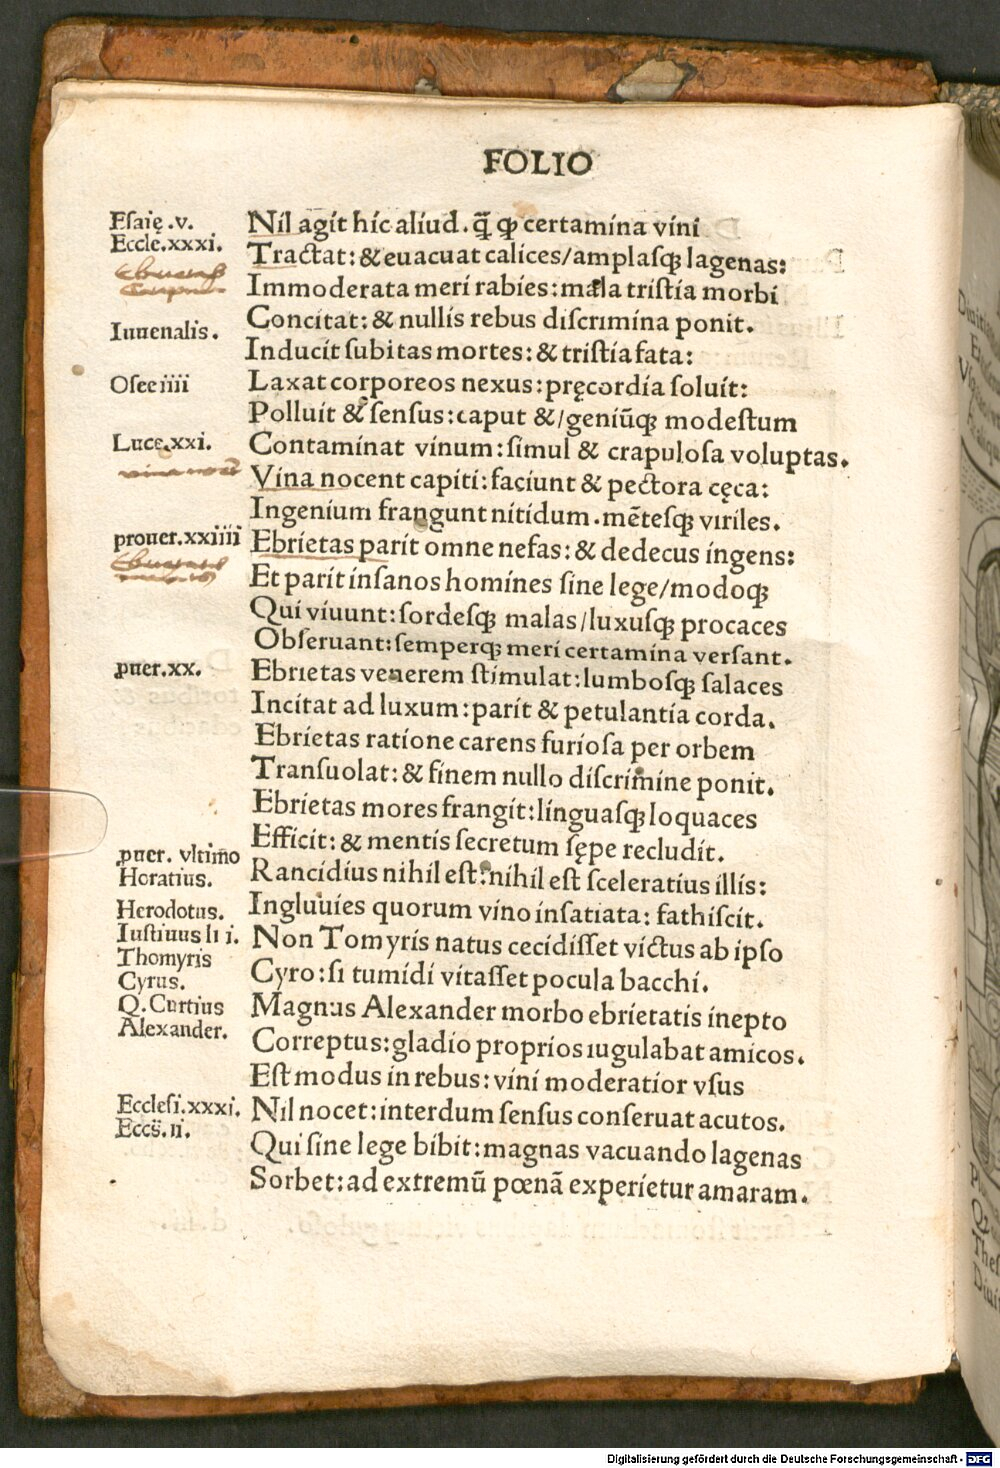 FOLIO
Esaię .v.
Eccle.xxxi.
Iuuenalis.
Osee iiii
Luce.xxi.
vina nocēt
prouer.xxiiii
ꝓuer.xx.
ꝓuer. vltimo
Horatius.
Herodotus.
Iustinus li i.
Thomyris
Cyrus.
Q.Curtius
Alexander.
Ecclesi.xxxi.
Eccs̈.ii.
Nil agit hic aliud. q̄̃ ꝙ certamina vini
Tractat: & euacuat calices/amplasꝗ lagenas:
Immoderata meri rabies: mala tristia morbi
Concitat: & nullis rebus discrimina ponit.
Inducit subitas mortes: & tristia fata:
Laxat corporeos nexus: pręcordia soluit:
Polluit & sensus: caput &/geniūꝗ modestum
Contaminat vinum: simul & crapulosa voluptas.
Vina nocent capiti: faciunt & pectora cęca:
Ingenium frangunt nitidum. mētesꝗ viriles.
Ebrietas parit omne nefas: & dedecus ingens:
Et parit insanos homines sine lege/modoꝗ
Qui viuunt: sordesꝗ malas/luxusꝗ procaces
Obseruant: semperꝗ meri certamina versant.
Ebrietas venerem stimulat: lumbosꝗ salaces
Incitat ad luxum: parit & petulantia corda.
Ebrietas ratione carens furiosa per orbem
Transuolat: & finem nullo discrimine ponit.
Ebrietas mores frangit: linguasꝗ loquaces
Efficit: & mentis secretum sępe recludit.
Rancidius nihil est: nihil est sceleratius illis:
Ingluuies quorum vino insatiata: fathiscit.
Non Tomyris natus cecidisset victus ab ipso
Cyro: si tumidi vitasset pocula bacchi.
Magnus Alexander morbo ebrietatis inepto
Correptus: gladio proprios iugulabat amicos.
Est modus in rebus: vini moderatior vsus
Nil nocet: interdum sensus conseruat acutos.
Qui sine lege bibit: magnas vacuando lagenas
Sorbet: ad extremū pœnā experietur amaram.
Digitalisierung gefördert durch die Deutsche Forschungsgemeinschaft - DFG